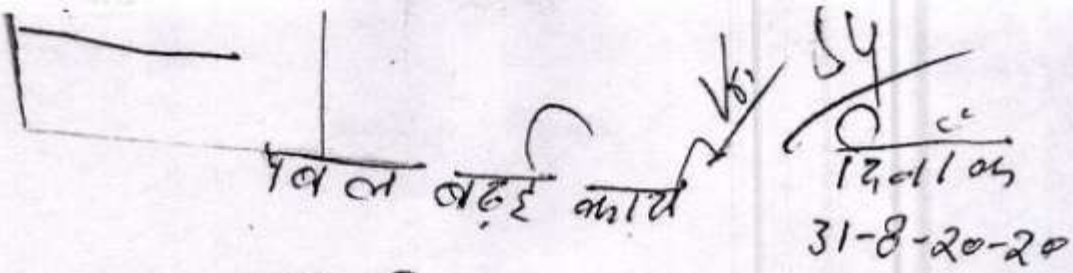 बिल बढ़ई कार्य
दिनांक
31-8-20-20